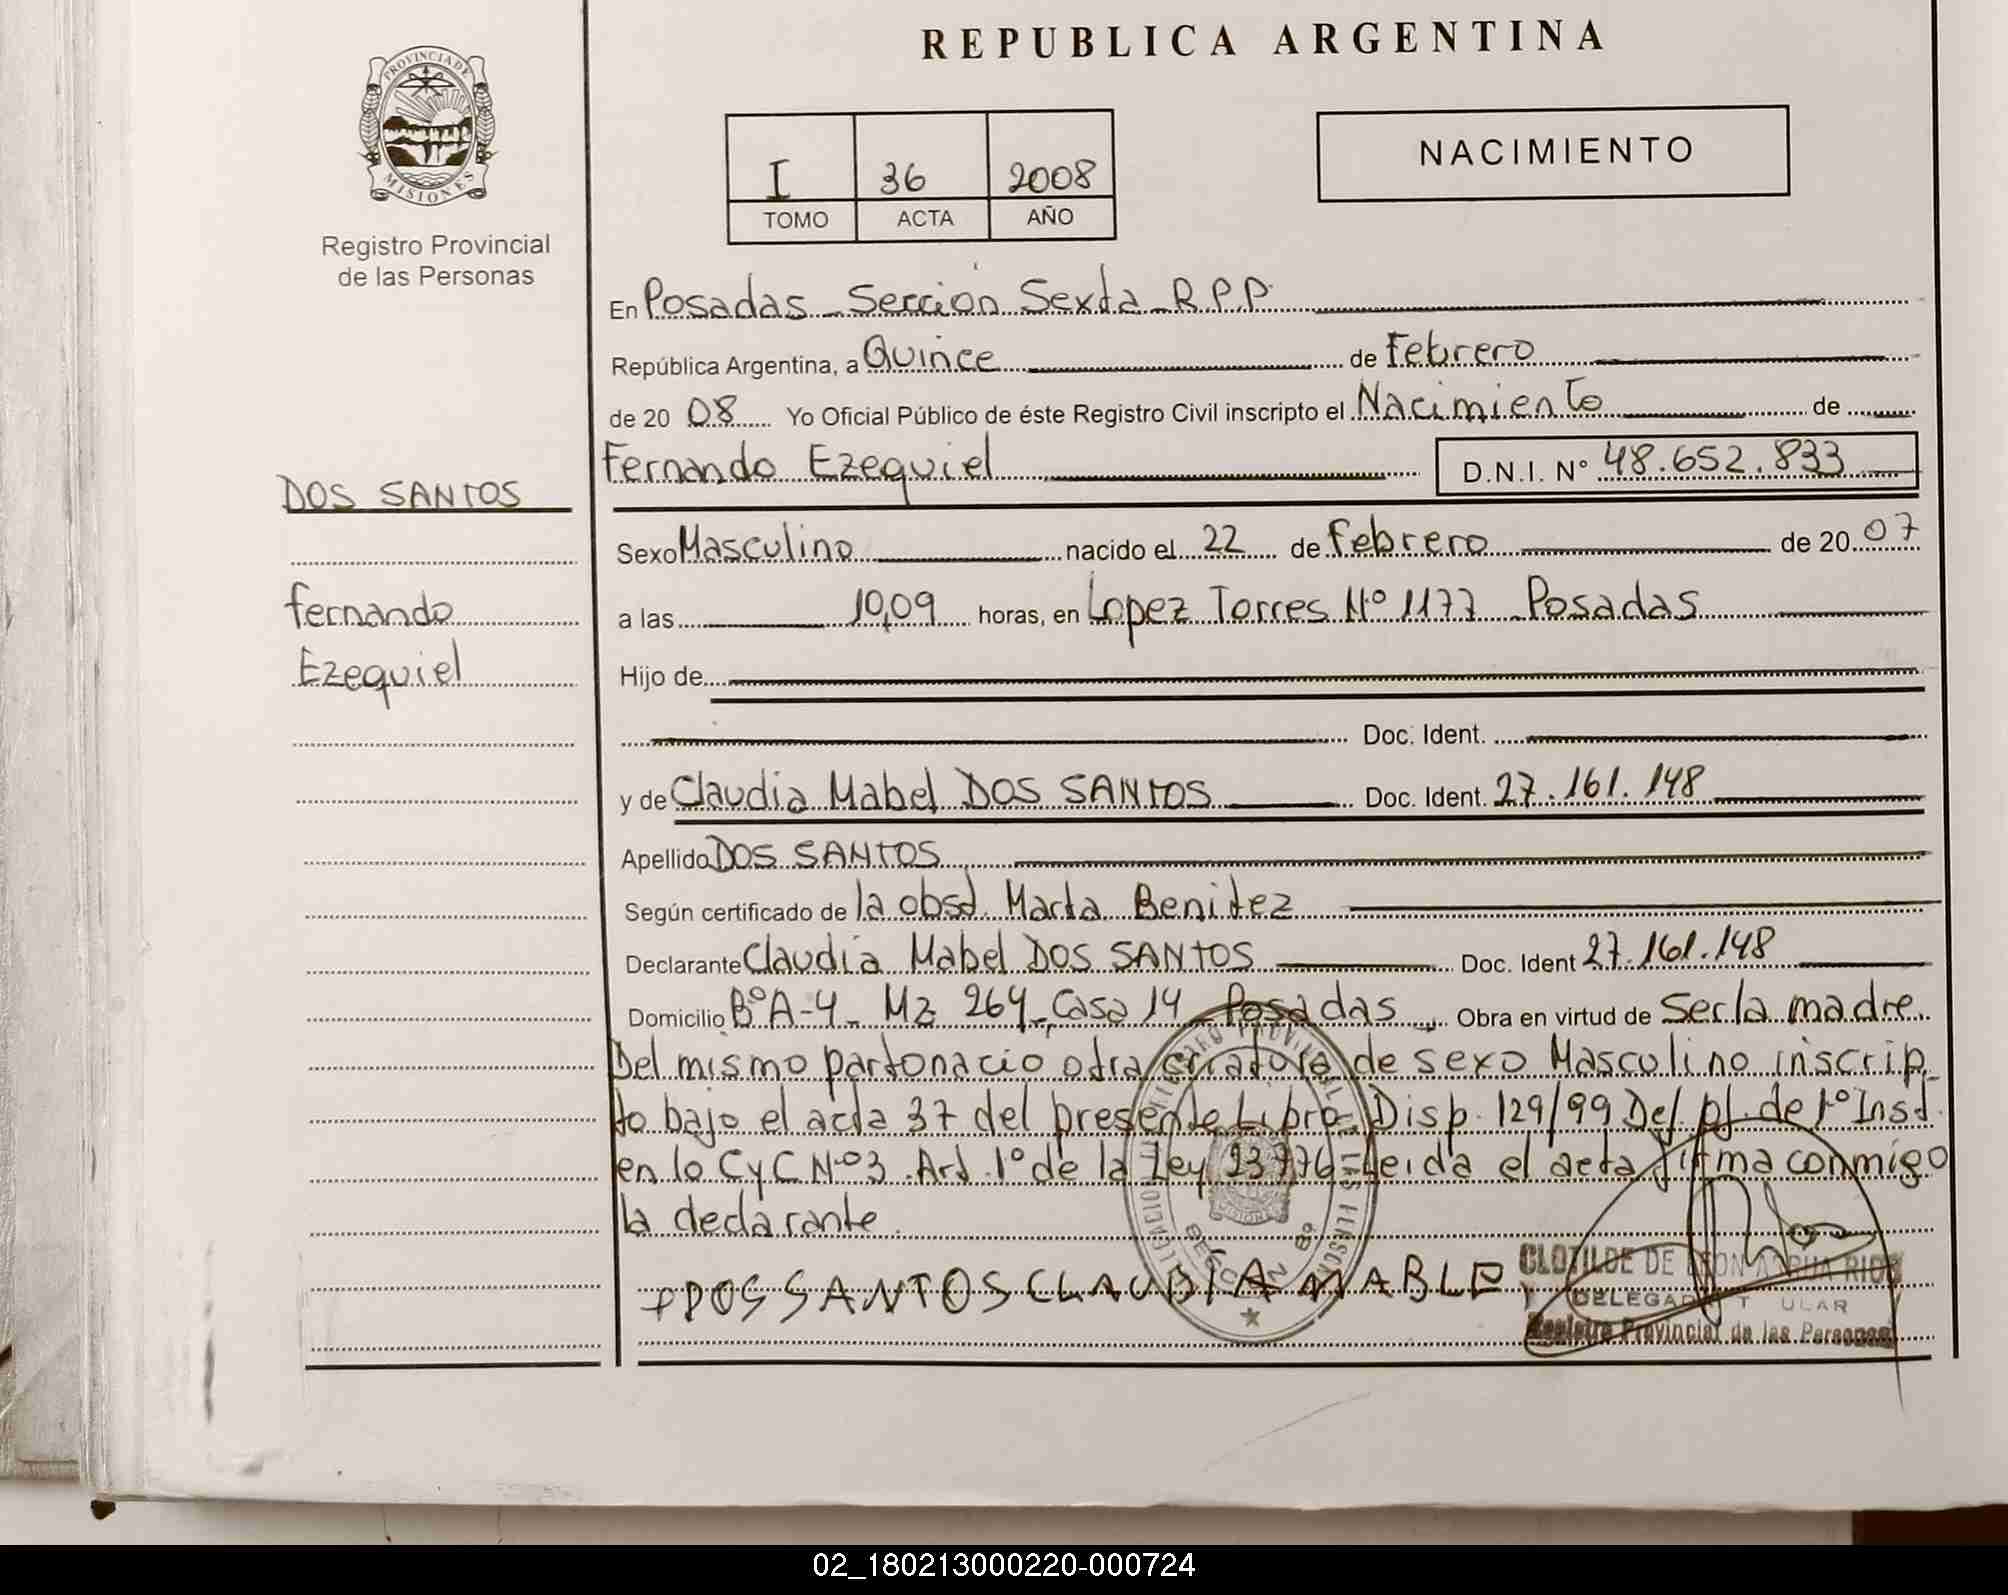 REPUBLICA ARGENTINA
PROVINCIA DE
MISIONES
Registro Provincial
de las Personas
I 36 2008
TOMO ACTA AÑO
NACIMIENTO
En Posadas - Sección Sexta - R.P.P.
República Argentina, a Quince de Febrero
de 20 08 Yo Oficial Público de éste Registro Civil inscripto el Nacimiento de
Fernando Ezequiel D.N.I. Nº 48.652.833
DOS SANTOS
Fernando
Ezequiel
Sexo Masculino nacido el 22 de Febrero de 20 07
a las 10,09 horas, en Lopez Torres Nº 1177 - Posadas
Hijo de
Doc. Ident.
y de Claudia Mabel DOS SANTOS Doc. Ident. 27.161.148
Apellido DOS SANTOS
Según certificado de la obst. Marta Benitez
Declarante Claudia Mabel DOS SANTOS Doc. Ident 27.161.148
Domicilio Bº A-4 - Mz 264 - Casa 14 - Posadas Obra en virtud de Ser la madre.
Del mismo parto nacio otra criatura de sexo Masculino inscrip
to bajo el acta 37 del presente Libro. Disp. 129/99 Def. pl. de 1º Inst.
en lo C y C Nº 3. Art. 1º de la Ley 23776 Leida el acta firma conmigo
la declarante.
DOS SANTOS CLAUDIA MABLE
CLOTILDE DE
DELEGADA TITULAR
Registro Provincial de las Personas
02_180213000220-000724